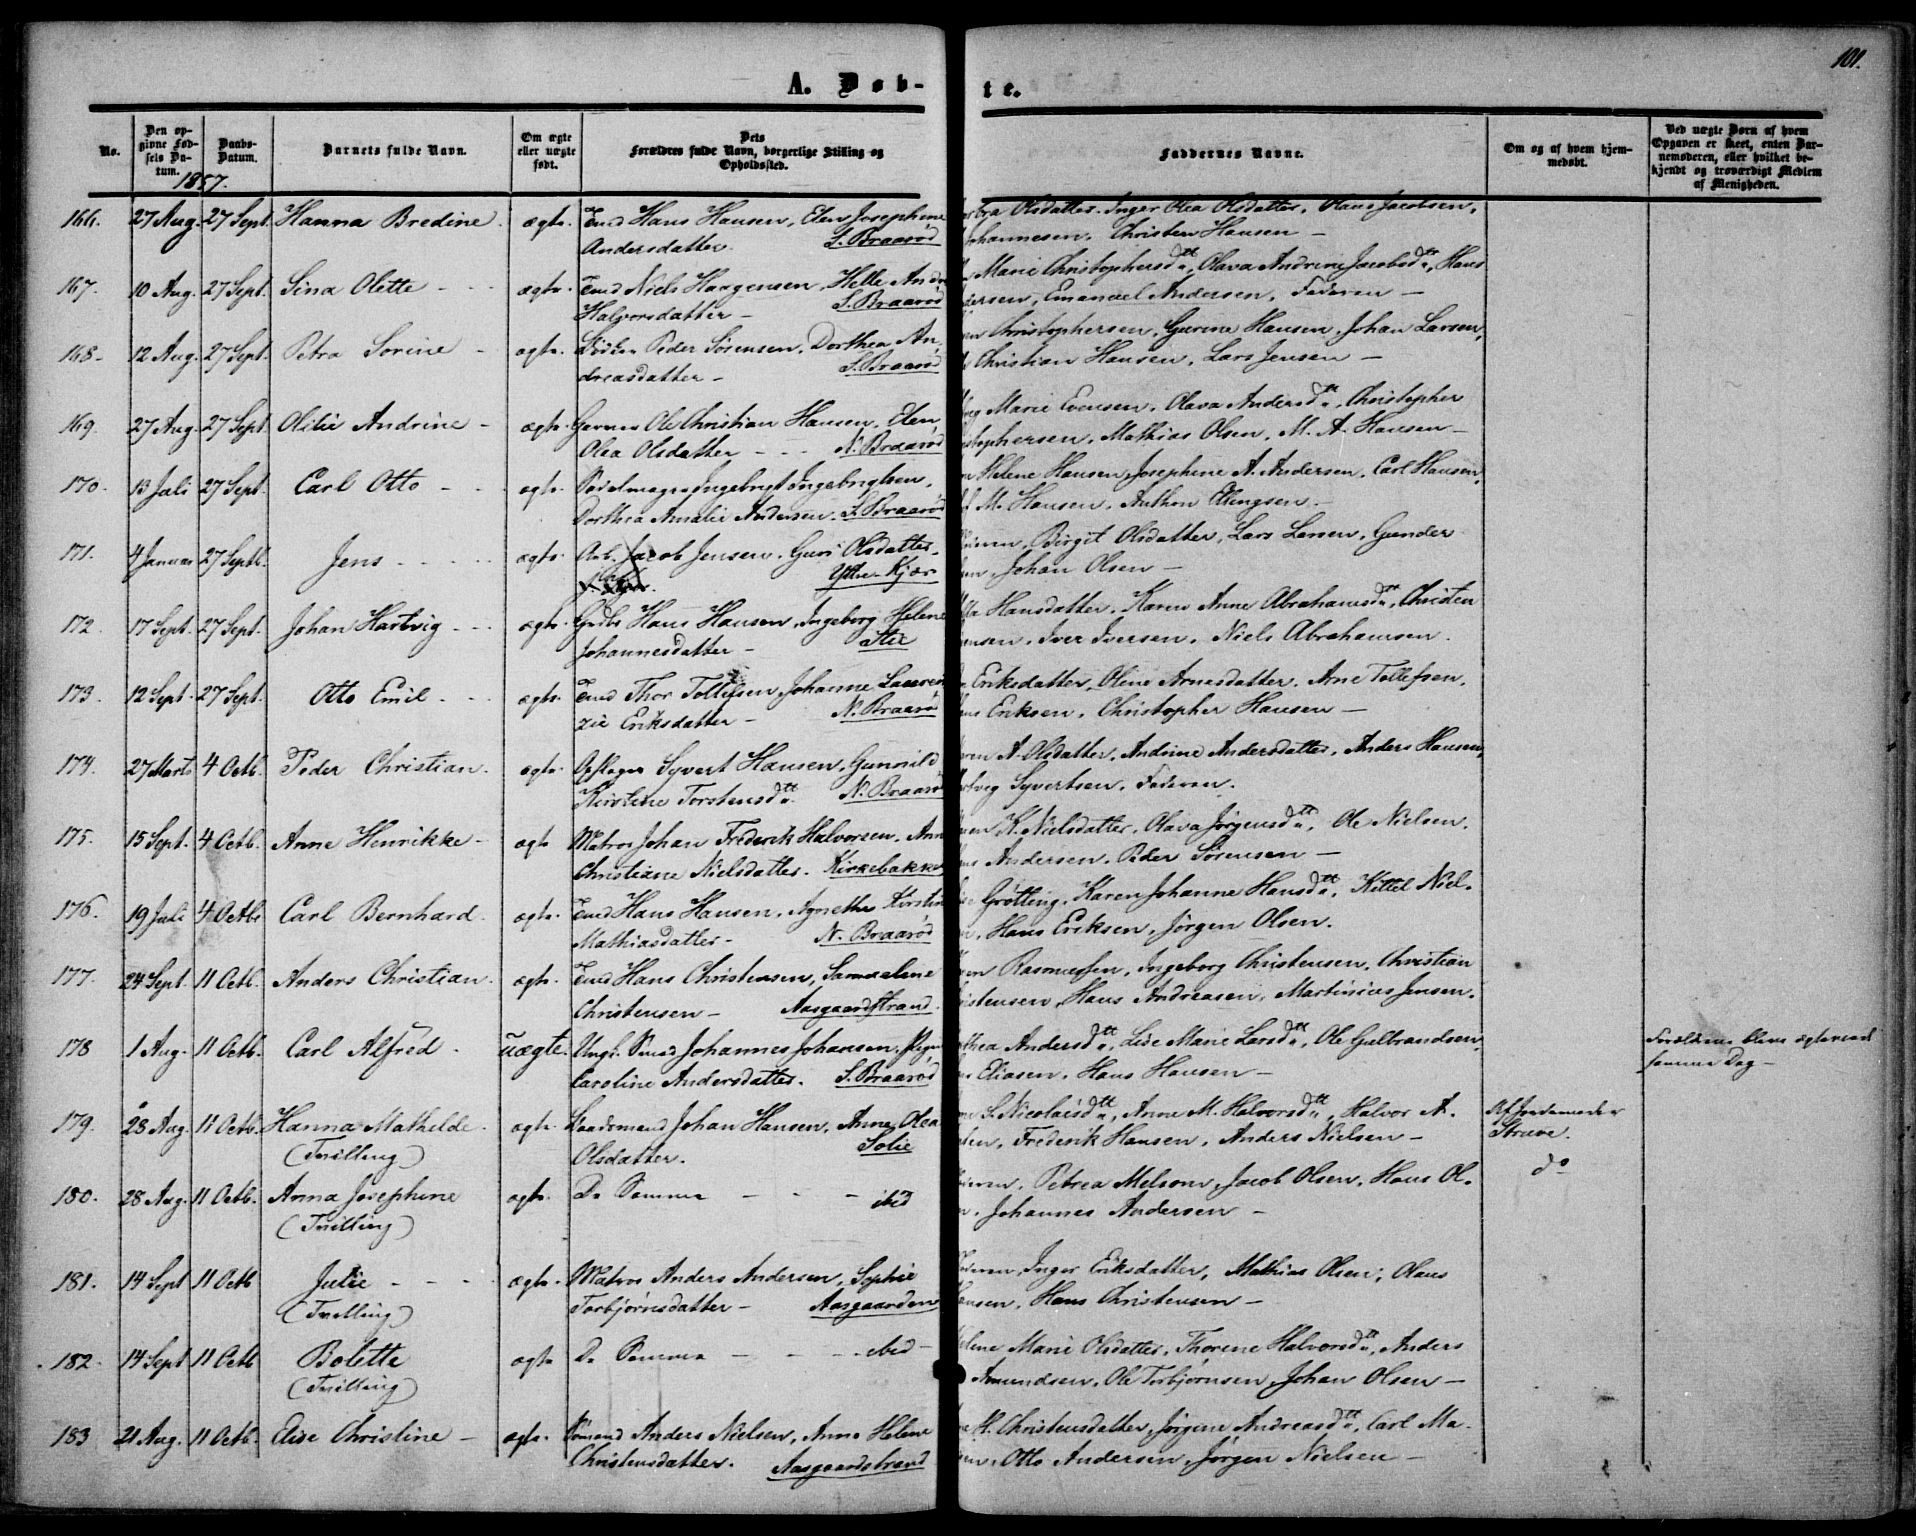 101.
A. Døb-
te.
No.
Den op-
givne Fød-
sels Da-
tum.
Daabs-
Datum.
Barnets fulde Navn.
Om ægte
eller uægte
født.
Dets
Forældres fulde Navn, borgerlige Stilling og
Opholdssted.
Faddernes Navne.
Om og af hvem hjem-
medøbt.
Ved uægte Børn af hvem
Opgaven er skeet, enten Bar-
nemoderen, eller hvilket be-
kjendt og troværdigt Medlem
af Menigheden.
1857.
166. 27 Aug. 27 Sept. Hanna Bredine. ægte. Hans Hansen, Elen Josephine
Andersdatter. S. Braarød
Olsdatter. Inger Olea Olsdatter, Olaus Jacobsen,
Johannesen. Christen Hansen –
167. 10 Aug. 27 Sept. Sina Olette - - ægte. Niels Haagensen, Helle
Halvorsdatter – S. Braarød
Marie Christophersdtt, Olava Andrine Jacobsdtt, Hans
Emanuel Andersen, Faderen –
168. 12 Aug. 27 Sept. Petra Sorine - ægte. Peder Sørensen, Dorthea An-
dreasdatter – S. Braarød
Christophersen, Gurine Hansen, Johan Larsen,
Christian Hansen, Lars Jensen –
169. 27 Aug. 27 Sept. Olilie Andrine - ægte. Garver Ole Christian Hansen, Elen
Olea Olsdatter - - - N. Braarød
Marie Evensen, Olava Andersdtt, Christopher
Mathias Olsen, M. A. Hansen –
170. 13 Juli 27 Sept. Carl Otto - - ægte. Ingebrigt Ingebrigtsen,
Dorthea Amalie Andersen. S. Braarød
Helene Hansen, Josephine A. Andersen, Carl Hansen,
M. Hansen, Anthon Ellingsen –
171. 4 Januar 27 Septb. Jens - - - ægte. Arb. Jacob Jensen, Guri Olsdatter,
Ytre Kjær
Birgit Olsdatter, Lars Larsen, Gunder
Johan Olsen –
172. 17 Sept. 27 Sept. Johan Hartvig - - ægte. Hans Hansen, Ingeborg Helene
Johannesdatter –
Hansdatter, Karen Anne Abrahamsdtt, Christen
Iver Iversen, Niels Abrahamsen.
173. 12 Sept. 27 Sept. Otto Emil - - ægte. Thor Tollefsen, Johanne Lauren-
zie Eriksdatter – N. Braarød
Eriksdatter, Oline Arnesdatter, Arne Tollefsen,
Eriksen, Christopher Hansen –
174. 27 Marts 4 Octb. Peder Christian. ægte. Syvert Hansen, Gunnild
Kirstine Torstensdtt. N. Braarød
A. Olsdatter, Andrine Andersdatter, Anders Hansen,
Syvertsen, Faderen.
175. 15 Sept. 4 Octb. Anne Henrikke - ægte Matros Johan Frederik Halvorsen, Anne
Christiane Nielsdatter. Kirkebakken
K. Nielsdatter, Olava Jørgensdtt, Ole Nielsen,
Andersen, Peder Sørensen –
176. 19 Juli 4 Octb. Carl Bernhard. ægte. Hans Hansen, Agnethe Kirstine
Mathiasdatter – N. Braarød
Grøtting, Karen Johanne Hansdtt, Kittel Niel-
Hans Eriksen, Jørgen Olsen.
177. 24 Sept. 11 Octb. Anders Christian. ægte. Hans Christensen,
Christensen – Aasgaardstrand.
Rasmussen, Ingeborg Christensen, Christian
Christensen, Hans Andreasen, Martinius Jensen.
178 1 Aug. 11 Octb. Carl Alfred. uægte. Ungk. Johannes Johansen, Pigen
Caroline Andersdatter. S. Braarød
Andersdtt, Lise Marie Larsdtt, Ole Gulbrandsen,
Eliasen, Hans Hansen –
Forældrene bleve ægteviede
samme Dag –
179. 28 Aug. 11 Octb. Hanna Mathilde. ægte. Johan Hansen, Anne Olea
(Tvilling) Olsdatter. Solie
S. Nicolaisdtt, Anne M. Halvorsdtt, Halvor A.
Frederik Hansen, Anders Nielsen –
Af Jordemoder
Struve.
180. 28 Aug. 11 Octb. Anna Josephine ægte. De Samme - - - ibid
(Tvilling)
Petrea Melsom, Jacob Olsen, Hans Ol-
Johannes Andersen –
do
181. 14 Sept 11 Octb Julie - - - ægte. Matros Anders Andersen, Sophie
(Tvilling) Torbjørnsdatter – Aasgaarden
Inger Eriksdatter, Mathias Olsen, Olaus
Hansen, Hans Christensen –
182. 14 Sept 11 Octb Bolette ægte De Samme - - - ibid –
(Tvilling)
Marie Olsdatter, Thorine Halvorsdtt, Anders
Amundsen, Ole Torbjørnsen, Johan Olsen –
183 21 Aug. 11 Octb. Elise Christine – ægte. Sømand Anders Nielsen, Anne Helene
Christensdatter. Aasgaardstrand
H. Christensdatter, Jørgine Andreasdtt, Carl Ma-
Otto Andersen, Jørgen Nielsen –